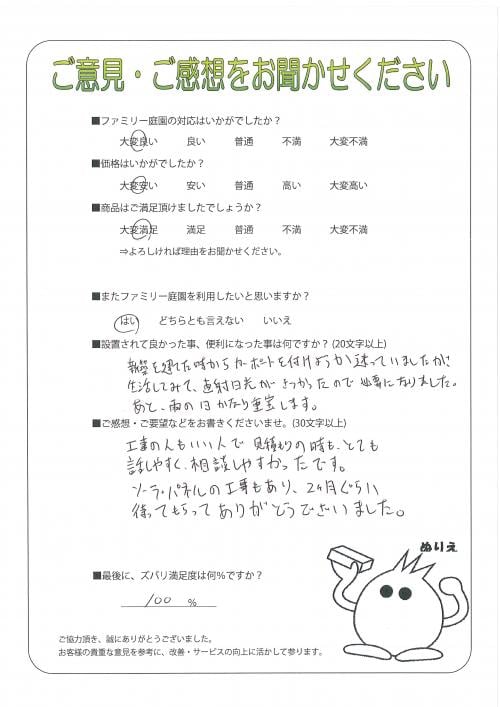 ご意見・ご感想をお聞かせください
■ファミリー庭園の対応はいかがでしたか？
大変良い 良い 普通 不満 大変不満
■価格はいかがでしたか？
大変安い 安い 普通 高い 大変高い
■商品はご満足頂けましたでしょうか？
大変満足 満足 普通 不満 大変不満
⇒よろしければ理由をお聞かせください。
■またファミリー庭園を利用したいと思いますか？
はい どちらとも言えない いいえ
■設置されて良かった事、便利になった事は何ですか？(20文字以上)
新築を建てた時からカーポートを付けようか迷っていましたが
生活してみて、直射日光がきつかったので必要になりました。
あと、雨の日かなり重宝します。
■ご感想・ご要望などをお書きくださいませ。(30文字以上)
工事の人もいい人で見積もりの時も、とても
話しやすく、相談しやすかったです。
ソーラーパネルの工事もあり、2ヶ月ぐらい
待ってもらってありがとうございました。
ぬりえ
■最後に、ズバリ満足度は何％ですか？
100 ％
ご協力頂き、誠にありがとうございました。
お客様の貴重な意見を参考に、改善・サービスの向上に活かして参ります。